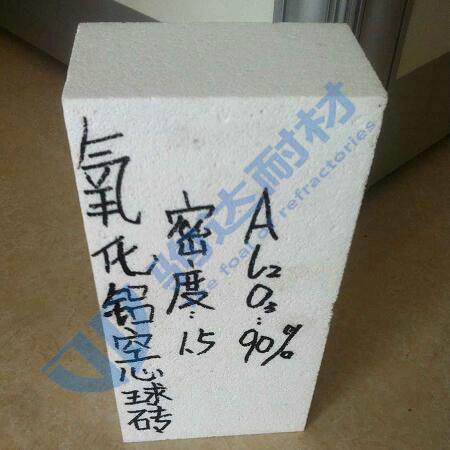 氧化铝空心球砖
密度:1.5
Al2O3:90%
耐材
foar refractories